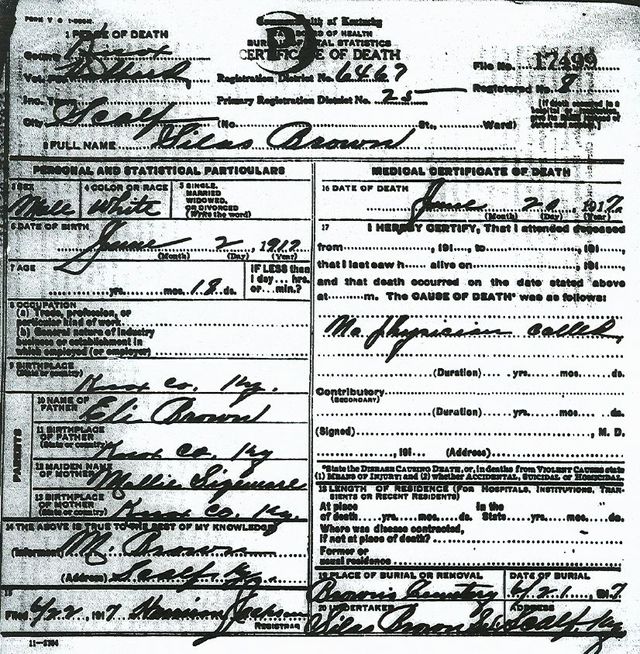 1 PLACE OF DEATH
Commonwealth of Kentucky
STATE BOARD OF HEALTH
BUREAU OF VITAL STATISTICS
CERTIFICATE OF DEATH
County Knox
Registration District No. 6467
File No. 17499
Primary Registration District No. 25
Registered No. 8
City Scalf (No. St., Ward)
2 FULL NAME Silas Brown
PERSONAL AND STATISTICAL PARTICULARS
3 SEX Male
4 COLOR OR RACE White
5 SINGLE, MARRIED WIDOWED, OR DIVORCED (Write the word)
6 DATE OF BIRTH June 2, 1917
(Month) (Day) (Year)
7 AGE yrs. mos. 18 ds.
IF LESS than 1 day... hrs. or... min.?
8 OCCUPATION
(a) Trade, profession, or particular kind of work
(b) General nature of industry business or establishment in which employed (or employer)
9 BIRTHPLACE (State or country) Knox Co. Ky.
PARENTS
10 NAME OF FATHER Eli Brown
11 BIRTHPLACE OF FATHER (State or country) Knox Co. Ky
12 MAIDEN NAME OF MOTHER Mollie
13 BIRTHPLACE OF MOTHER (State or country) Knox Co. Ky
14 THE ABOVE IS TRUE TO THE BEST OF MY KNOWLEDGE
(Informant) M. Brown
(Address) Scalf, Ky.
15
Filed 6/22, 1917 Harrison Jackson
REGISTRAR
11-3184
MEDICAL CERTIFICATE OF DEATH
16 DATE OF DEATH June 20, 1917
(Month) (Day) (Year)
17 I HEREBY CERTIFY, That I attended deceased
from , 191 , to , 191 ,
that I last saw h alive on , 191 ,
and that death occurred on the date stated above
at m. The CAUSE OF DEATH* was as follows:
No physician called,
(Duration) yrs. mos. ds.
Contributory (SECONDARY)
(Duration) yrs. mos. ds.
(Signed) , M. D.
, 191 (Address)
*State the DISEASE CAUSING DEATH, or, in deaths from VIOLENT CAUSES state
(1) MEANS OF INJURY; and (2) whether ACCIDENTAL, SUICIDAL OR HOMICIDAL.
18 LENGTH OF RESIDENCE (FOR HOSPITALS, INSTITUTIONS, TRANSIENTS OR RECENT RESIDENTS)
At place of death yrs. mos. ds. In the State yrs. mos. ds.
Where was disease contracted, if not at place of death?
Former or usual residence
19 PLACE OF BURIAL OR REMOVAL Brown's Cemetery
DATE OF BURIAL 6/21, 1917
20 UNDERTAKER Silas Brown
ADDRESS Scalf, Ky